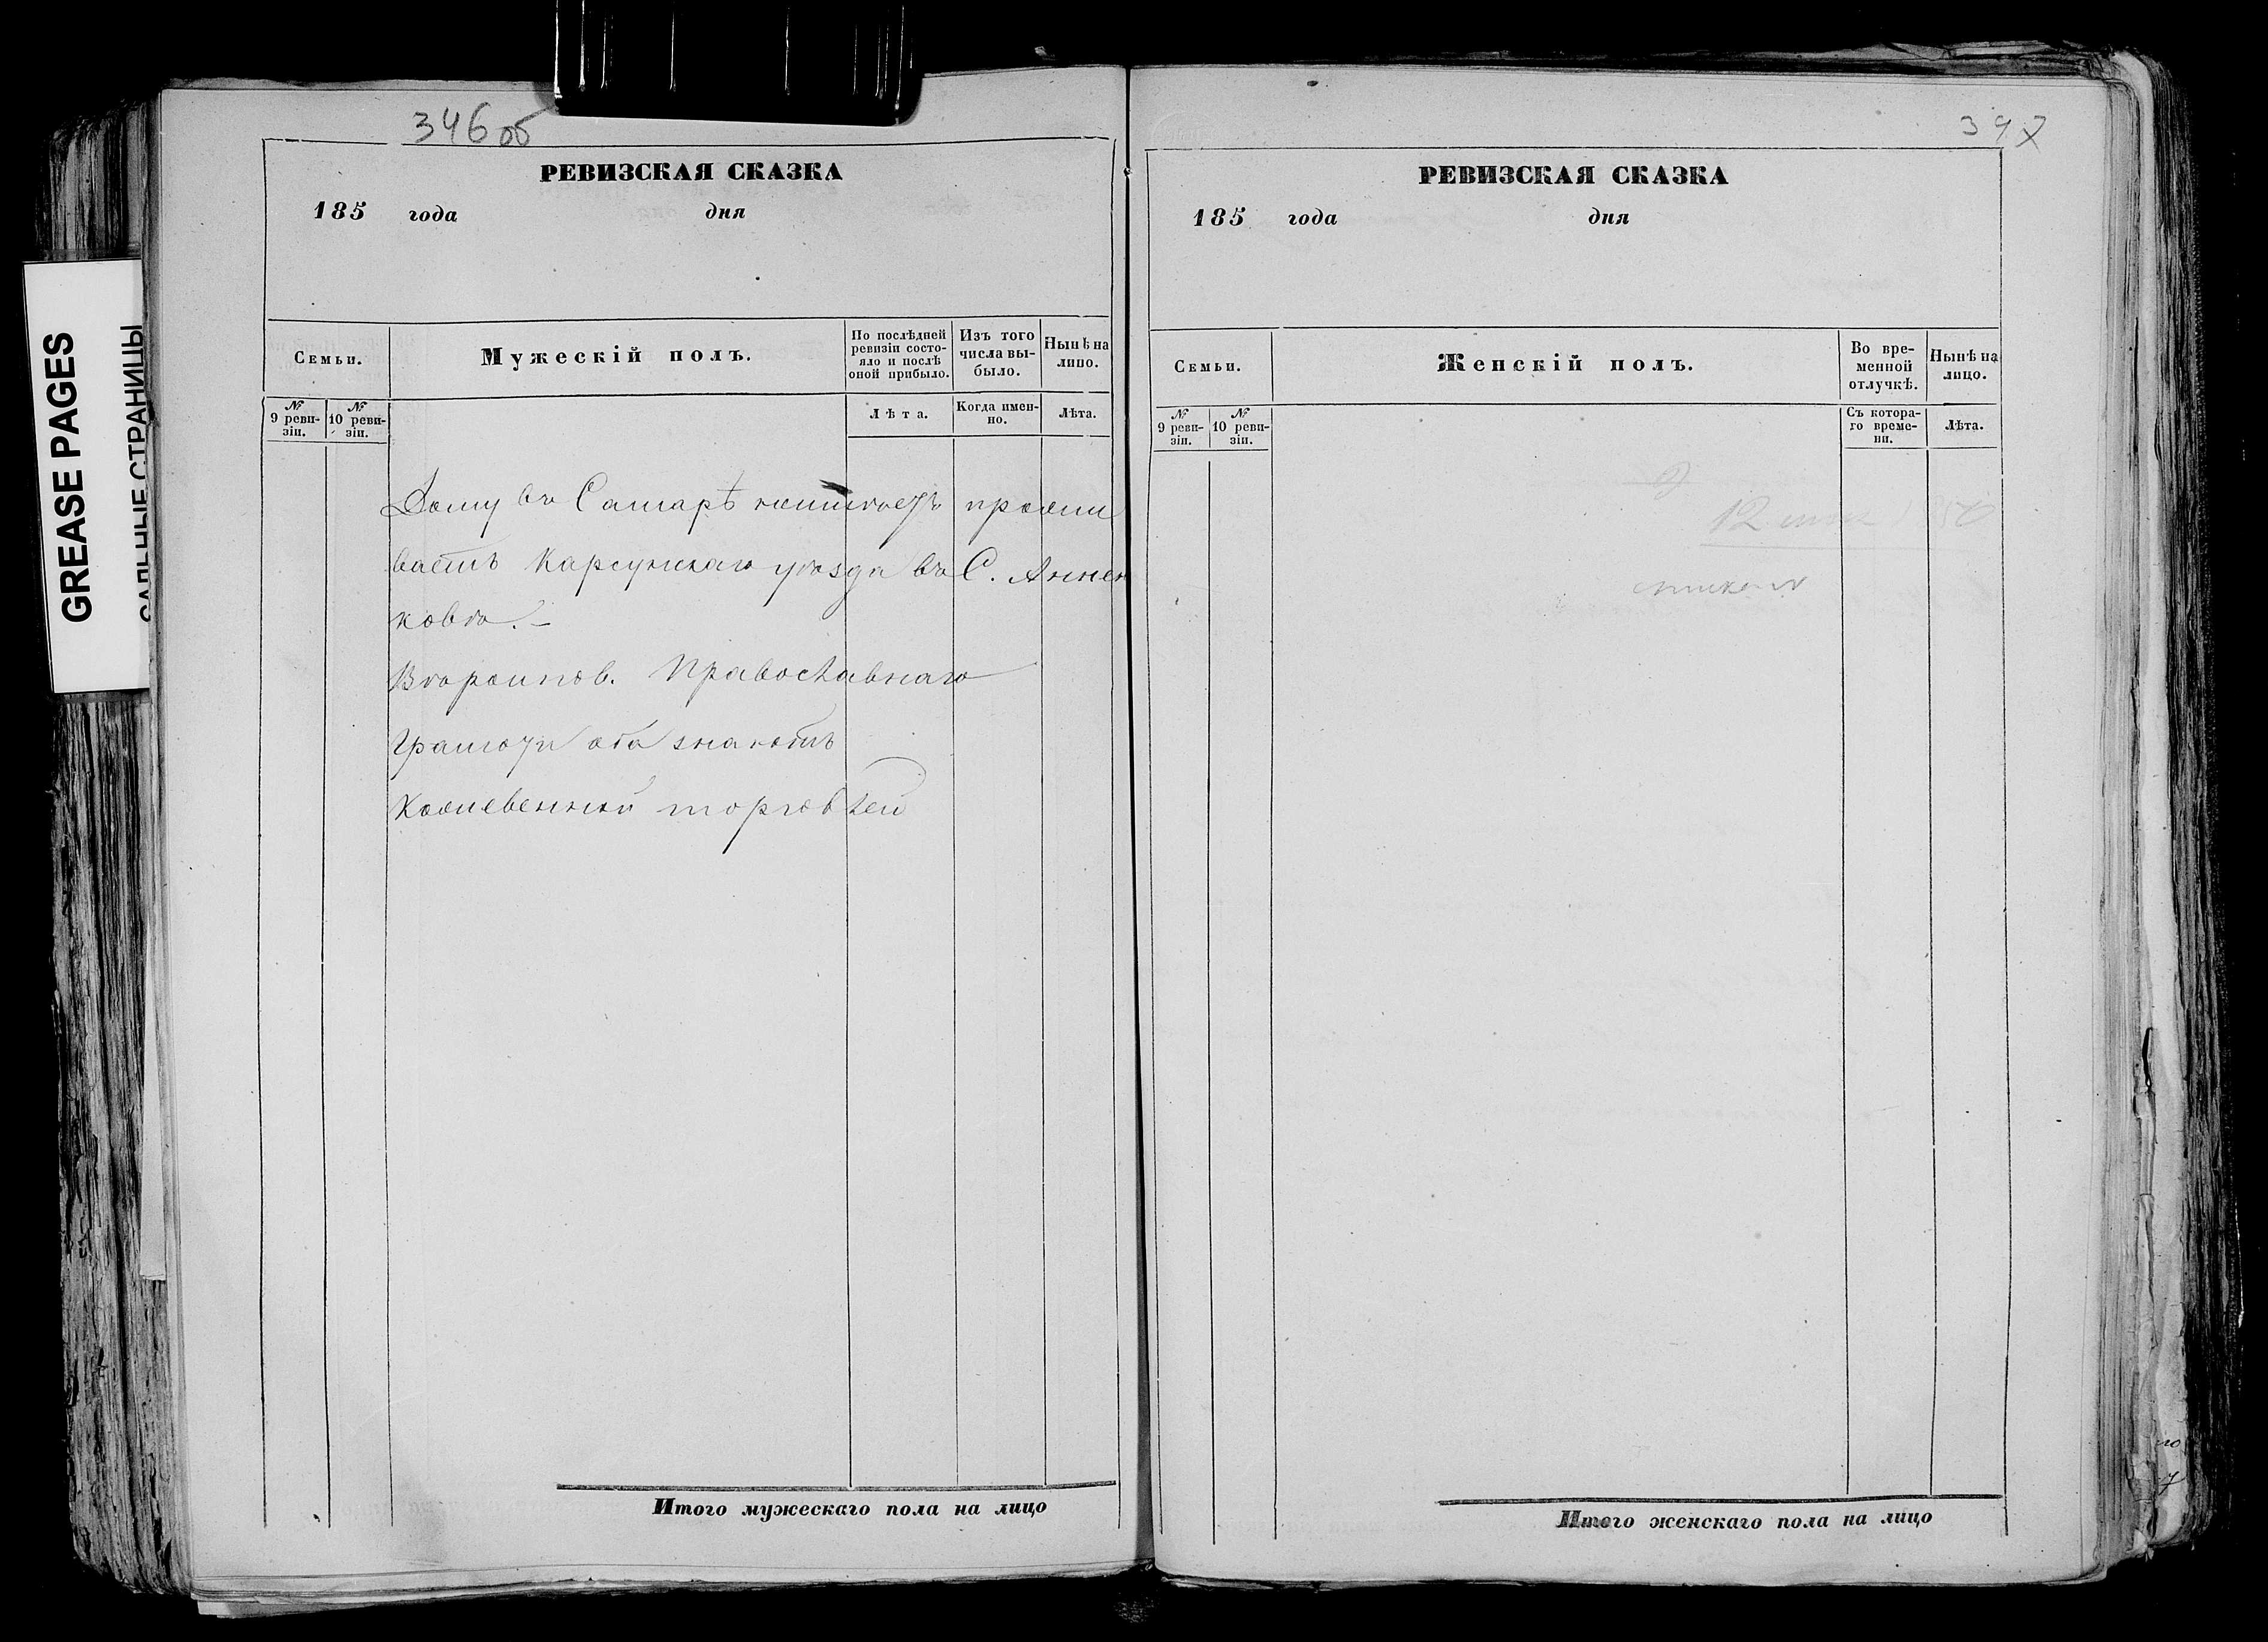 346 об
РЕВИЗСКАЯ СКАЗКА
185 года дня
Семьи.
Мужескій полъ.
По послѣдней ревизіи состояло и послѣ оной прибыло.
Изъ того числа выбыло.
Нынѣ на лицо.
№ 9 ревизіи.
№ 10 ревизіи.
Лѣта.
Когда именно.
Лѣта.
Дому въ Самарѣ неимѣетъ прожи
ваетъ Карсунскаго уѣзда въ С. Аннен
ковѣ. –
Вѣроиспов. Православнаго
Грамоти оба знаютъ
Кожевенной торговлей
Итого мужескаго пола на лицо
GREASE PAGES
САЛЬНЫЕ СТРАНИЦЫ
347
РЕВИЗСКАЯ СКАЗКА
185 года дня
Семьи.
Женскій полъ.
Во временной отлучкѣ.
Нынѣ на лицо.
№ 9 ревизіи.
№ 10 ревизіи.
Съ котораго времени.
Лѣта.
12
Итого женскаго пола на лицо